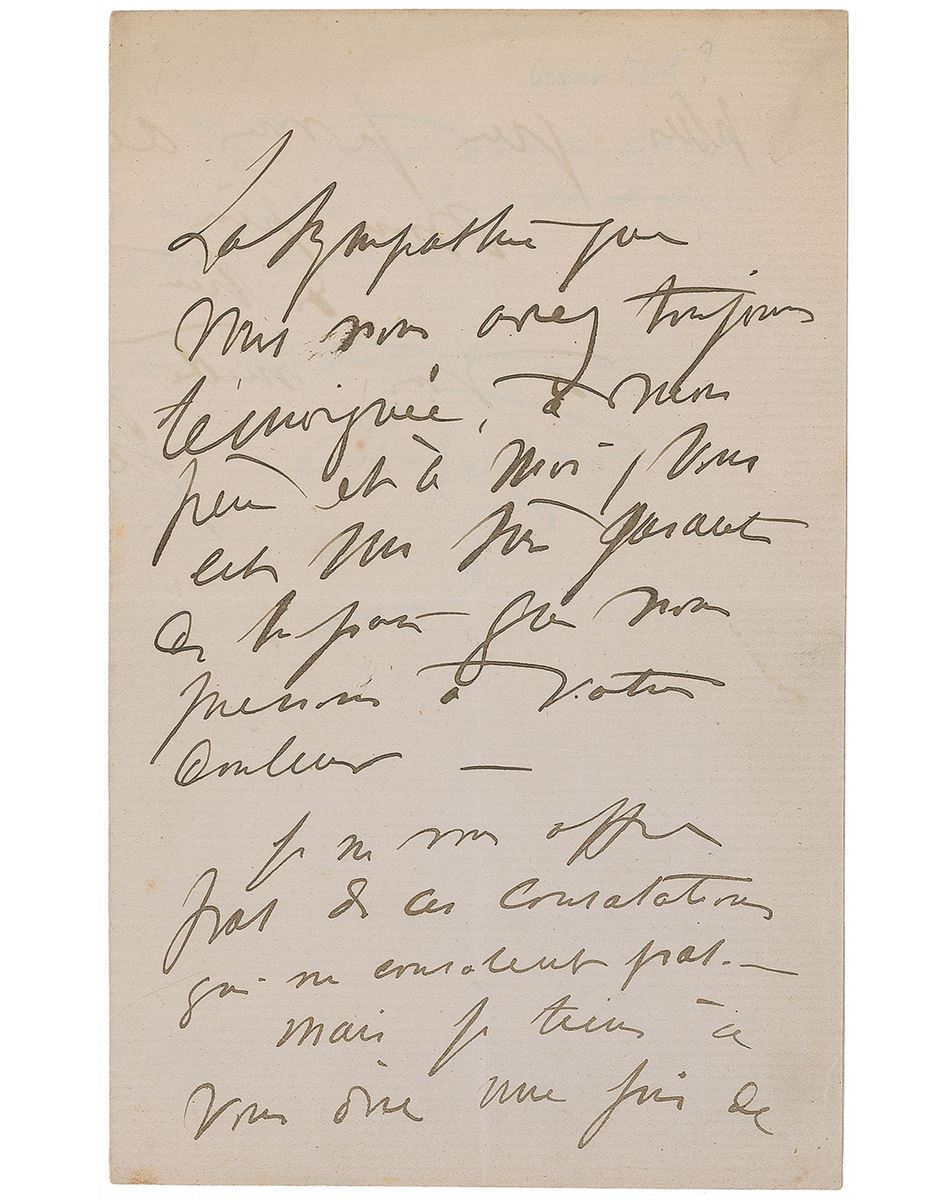 La Sympathie que
vous nous avez toujours
témoignée, à mon
père et à moi, vous
est un sûr garant
de la part que nous
prenons à votre
douleur —
je ne vous offre
pas de ces consolations
qui ne consolent pas. —
mais je tiens à
vous dire une fois de